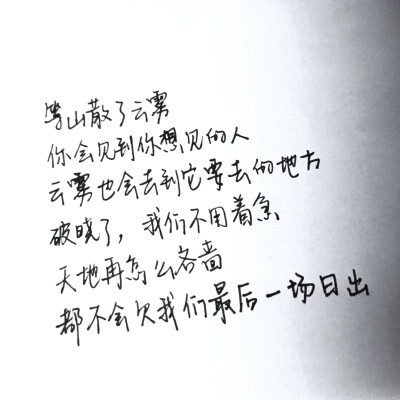 等山散了云雾
你会见到你想见的人
云雾也会去到它要去的地方
破晓了，我们不用着急
天地再怎么吝啬
都不会欠我们最后一场日出